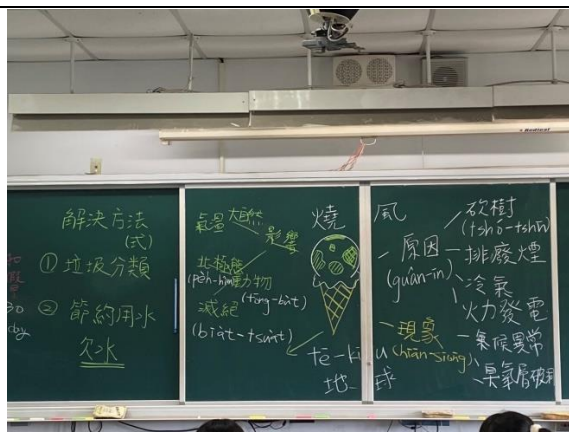 解決方法
(式)
① 垃圾分類
② 節約用水
欠水
氣溫 大自然
影響
北極熊 動物
(pe̍h-hîm) (tōng-bu̍t)
滅絕
(bia̍t-tsua̍t)
燒
tē-kiû
地球
風
原因
(guân-in)
砍樹
(tshò-tshiū)
排廢煙
冷氣
火力發電
現象
(hiān-siōng)
氣候異常
臭氧層破